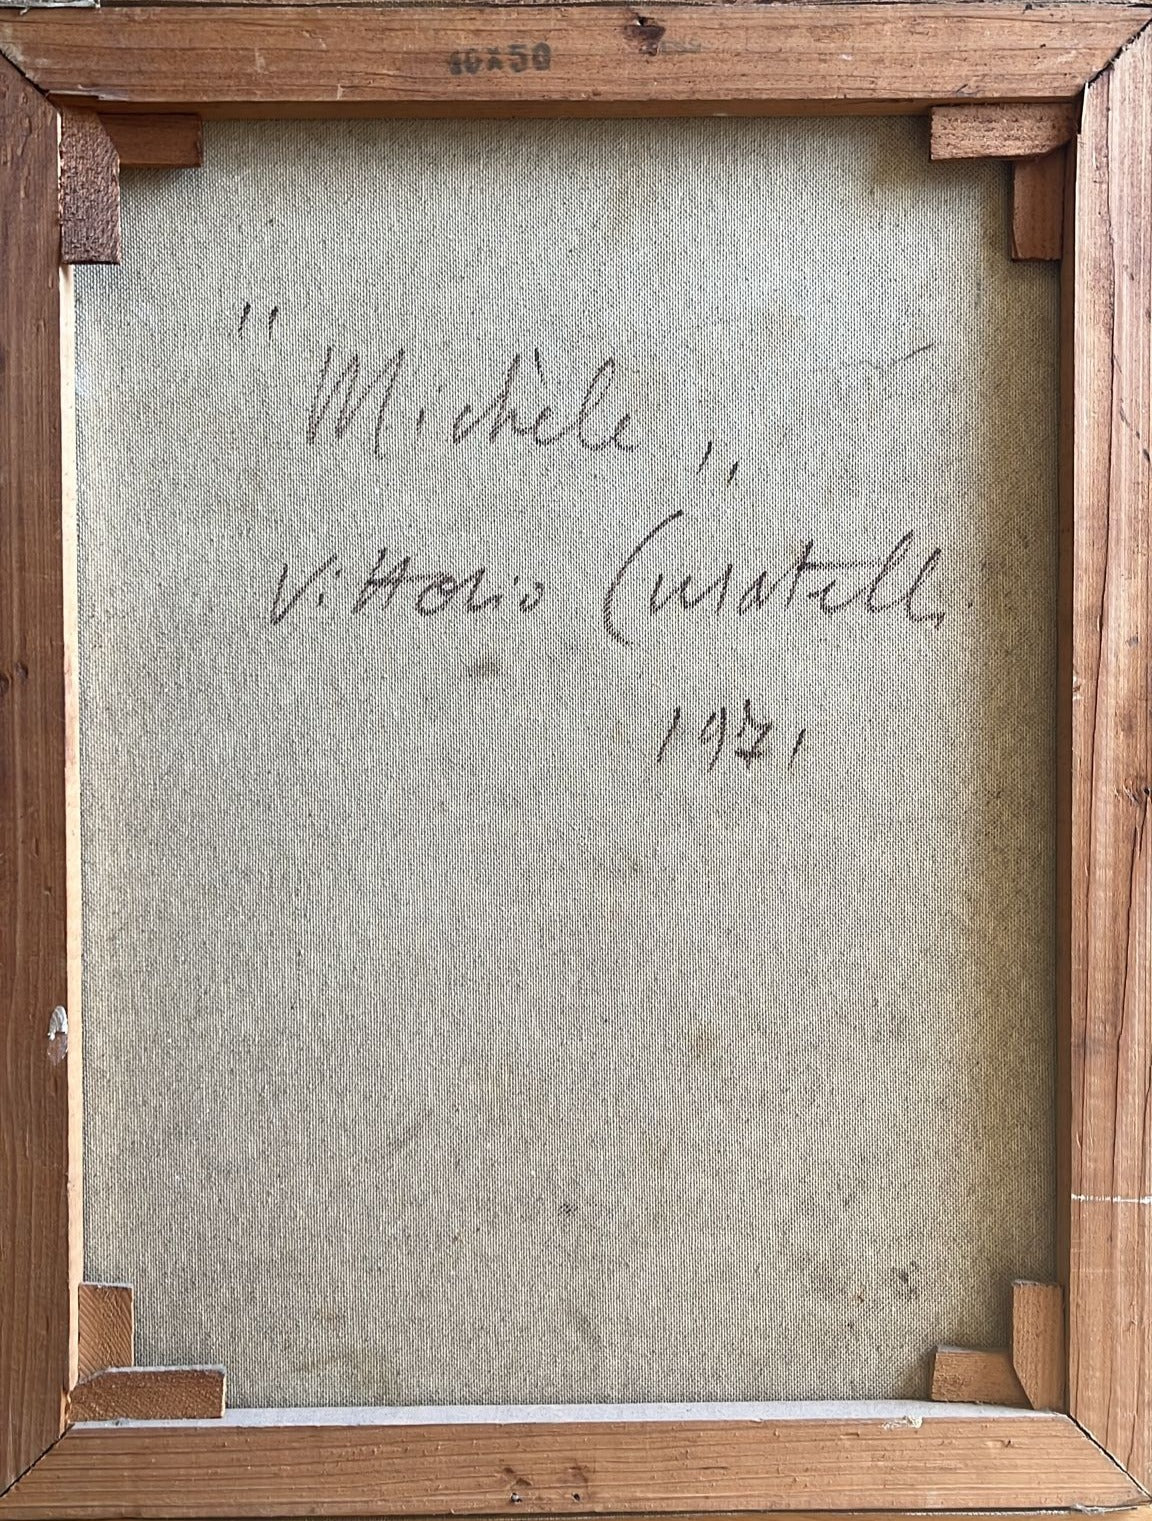 40x50
"Michèle"
Vittorio Cusatelli
1971